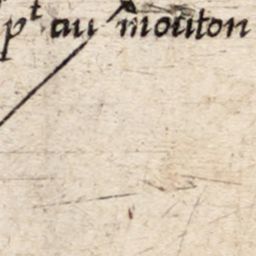 pt au mouton